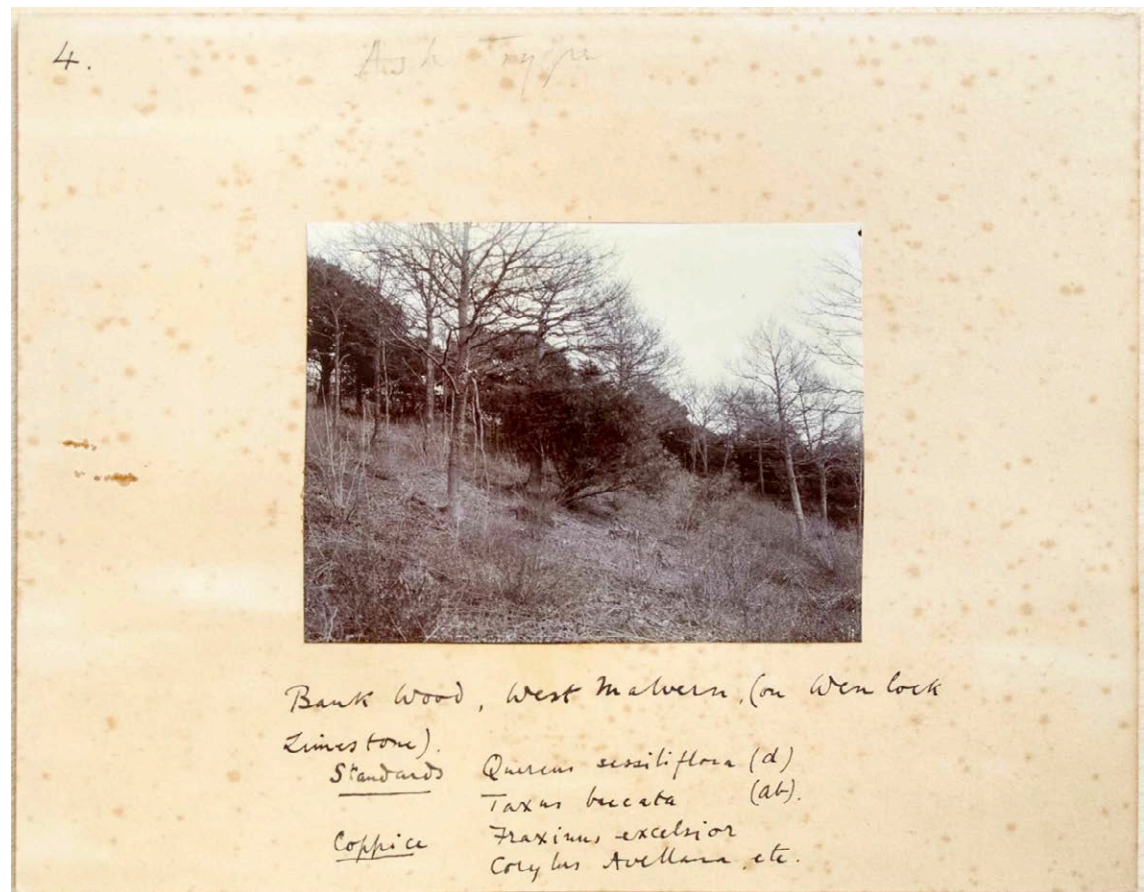 4.
Ash Type
Bank Wood, West Malvern, (on Wenlock
Limestone).
Standards Quercus sessiliflora (d)
Taxus baccata (ab).
Coppice Fraxinus excelsior
Corylus Avellana etc.